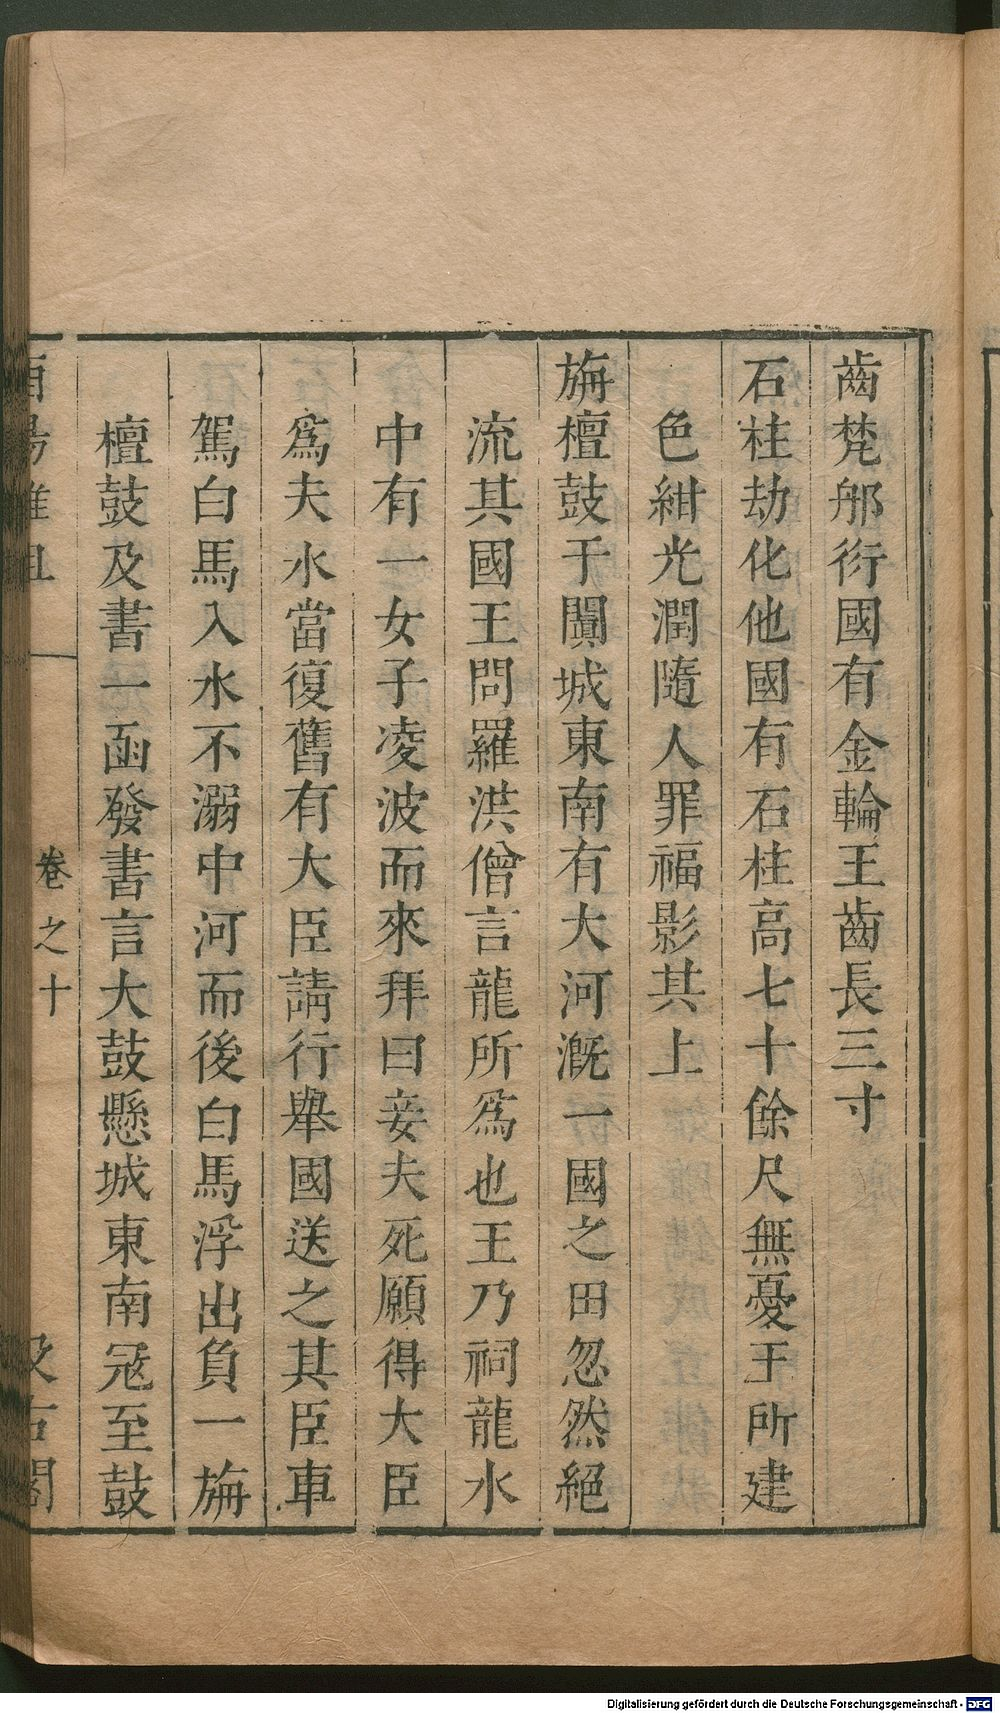 齒梵那衍國有金輪王齒長三寸
石柱劫化他國有石柱高七十餘尺無憂王所建
色紺光潤隨人罪福影其上
旃檀鼓于闐城東南有大河溉一國之田忽然絕
流其國王問羅洪僧言龍所爲也王乃祠龍水
中有一女子凌波而來拜曰妾夫死願得大臣
爲夫水當復舊有大臣請行舉國送之其臣車
駕白馬入水不溺中河而後白馬浮出負一旃
檀鼓及書一函發書言大鼓懸城東南寇至鼓
酉陽雜俎
卷之十
汲古閣
Digitalisierung gefördert durch die Deutsche Forschungsgemeinschaft - DFG